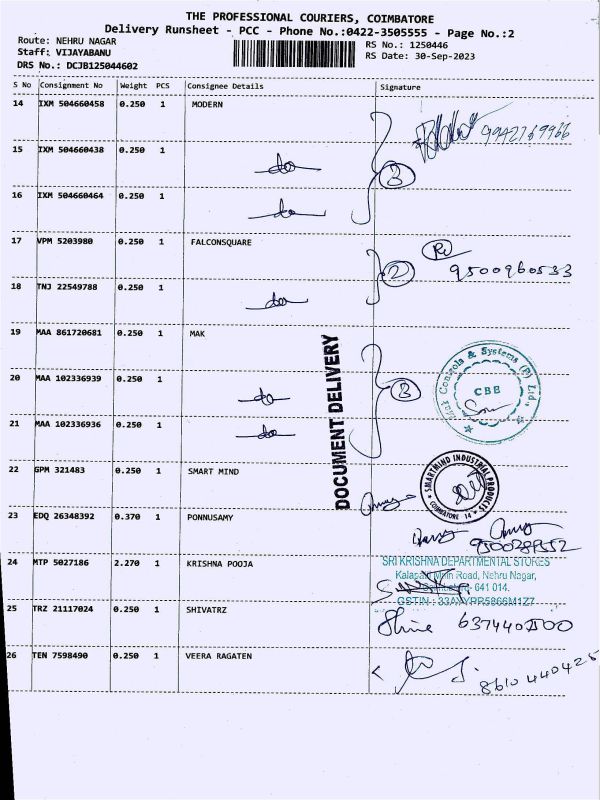 THE PROFESSIONAL COURIERS, COIMBATORE
Delivery Runsheet - PCC - Phone No.:0422-3505555 - Page No.:2
Route: NEHRU NAGAR
Staff: VIJAYABANU
DRS No.: DCJB125044602
RS No.: 1250446
RS Date: 30-Sep-2023
S No Consignment No Weight PCS Consignee Details Signature
14 IXM 504660458 0.250 1 MODERN
9942769966
15 IXM 504660438 0.250 1
do
3
16 IXM 504660464 0.250 1
do
17 VPM 5203980 0.250 1 FALCONSQUARE
2
9500960533
18 TNJ 22549788 0.250 1
do
19 MAA 861720681 0.250 1 MAK
20 MAA 102336939 0.250 1
do
3
Mak Controls & Systems (P) Ltd.,
CBE
21 MAA 102336936 0.250 1
do
DOCUMENT DELIVERY
22 GPM 321483 0.250 1 SMART MIND
SMARTMIND INDUSTRIAL PRODUCTS
COIMBATORE 14
23 EDQ 26348392 0.370 1 PONNUSAMY
9500289552
24 MTP 5027186 2.270 1 KRISHNA POOJA
SRI KRISHNA DEPARTMENTAL STORES
Main Road, Nehru Nagar,
641 014.
GSTIN : 33AXYPR5866M1Z7
25 TRZ 21117024 0.250 1 SHIVATRZ
26 TEN 7598490 0.250 1 VEERA RAGATEN
8610440425